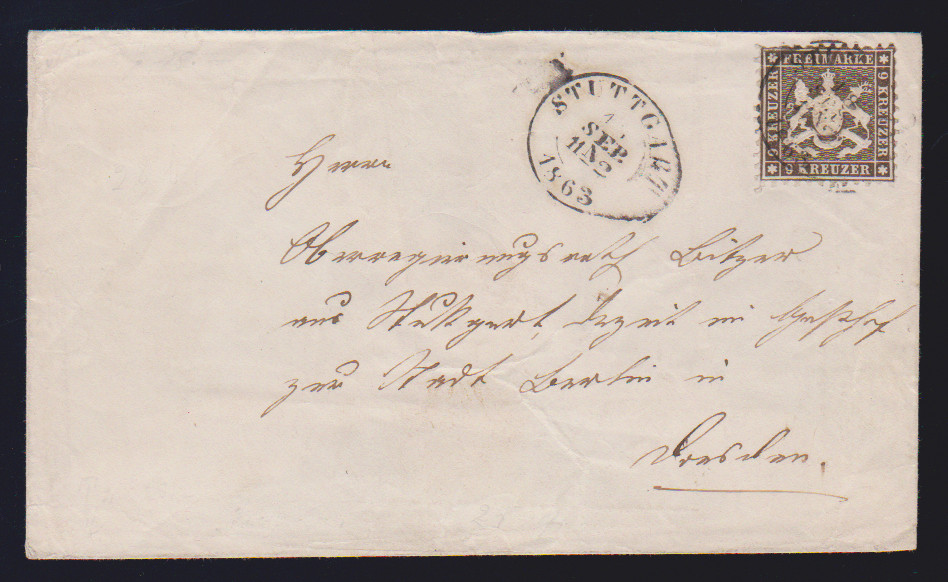 FREIMARKE
9 KREUZER
9 KREUZER
9 KREUZER
STUTTGART
7
SEP.
1863
Herrn
Oberregierungsrath Bitzer
aus Stuttgart, derzeit im Gasthof
zur Stadt Berlin in
Dresden.